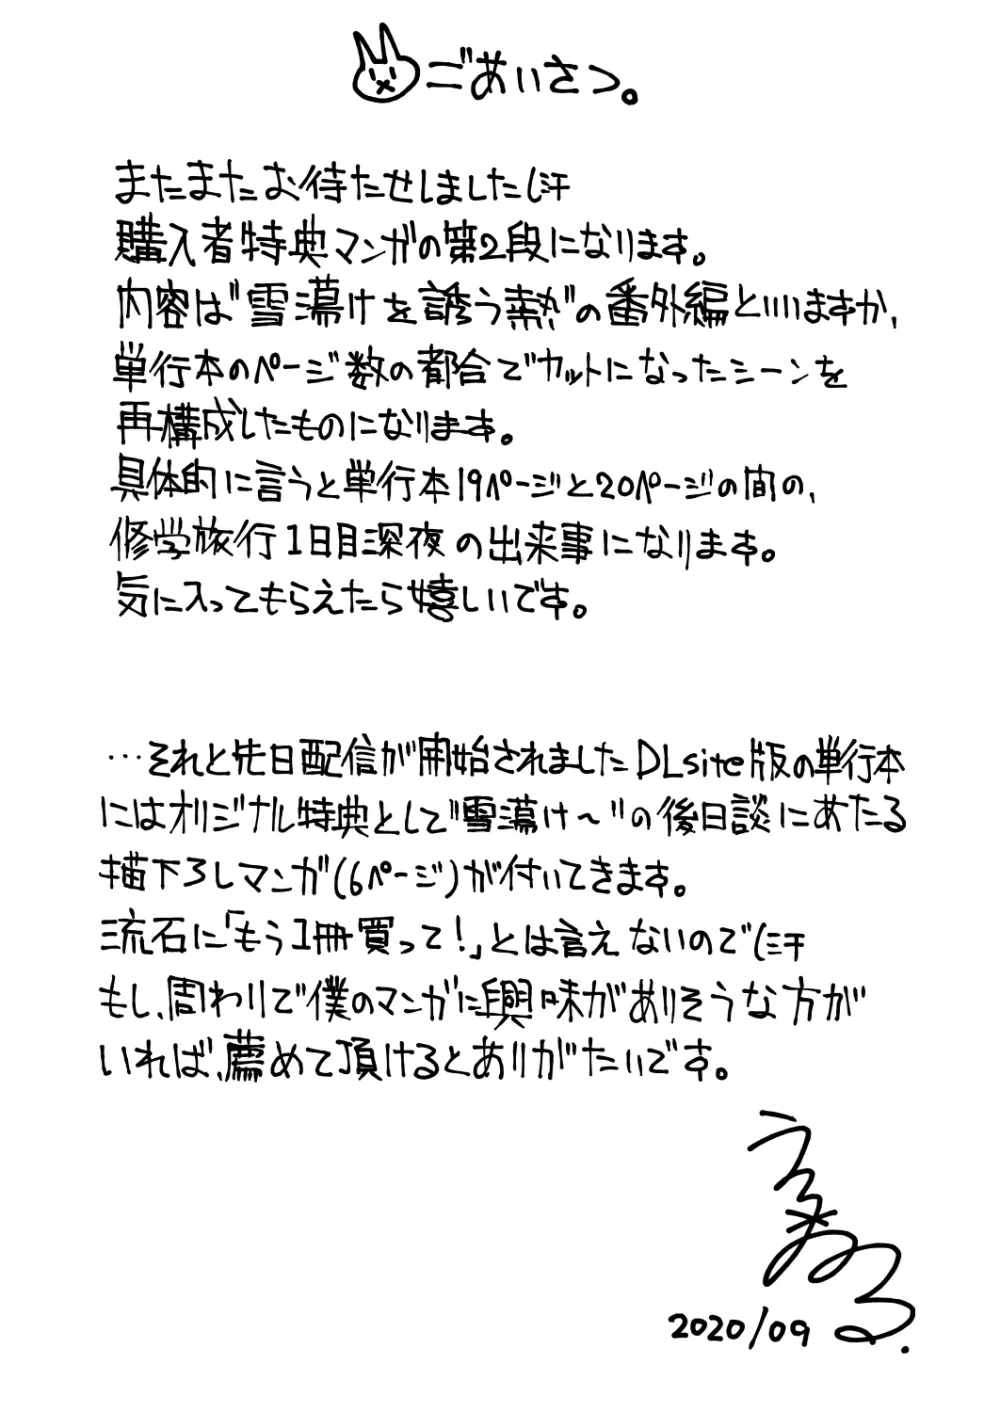 ごあいさつ。
またまたお待たせしました(汗
購入者特典マンガの第2段になります。
内容は"雪蕩けを誘う熱"の番外編といいますか、
単行本のページ数の都合でカットになったシーンを
再構成したものになります。
具体的に言うと単行本19ページと20ページの間の、
修学旅行1日目深夜の出来事になります。
気に入ってもらえたら嬉しいです。
…それと先日配信が開始されましたDLsite版の単行本
にはオリジナル特典として"雪蕩け～"の後日談にあたる
描下ろしマンガ(6ページ)が付いてきます。
流石に「もう1冊買って!」とは言えないので(汗
もし、周わりで僕のマンガに興味がありそうな方が
いれば、薦めて頂けるとありがたいです。
2020/09